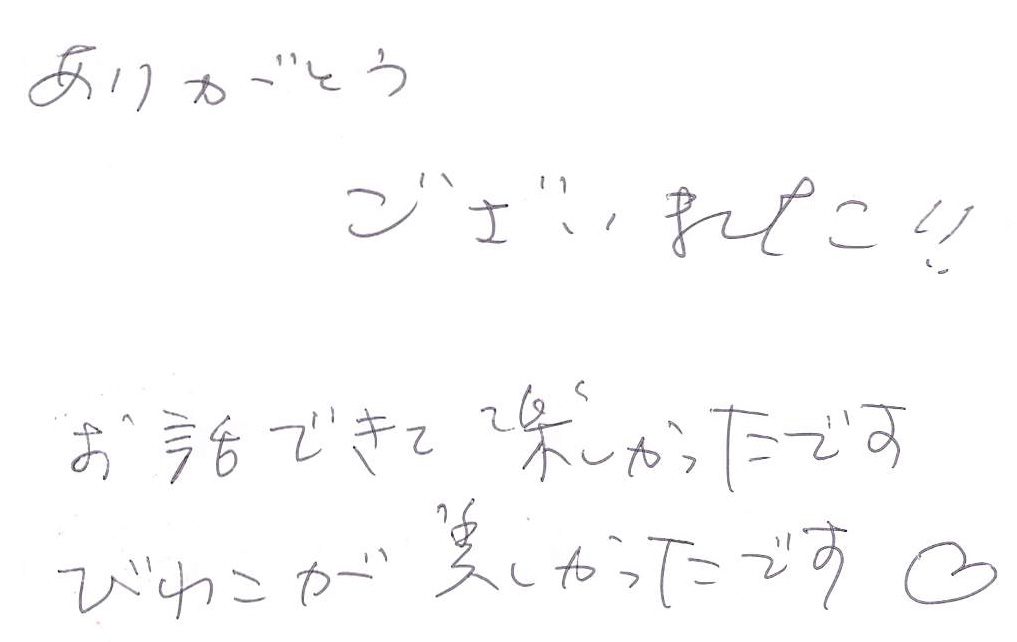 ありがとう
ございました!!
お話できて楽しかったです
びわこが美しかったです♡